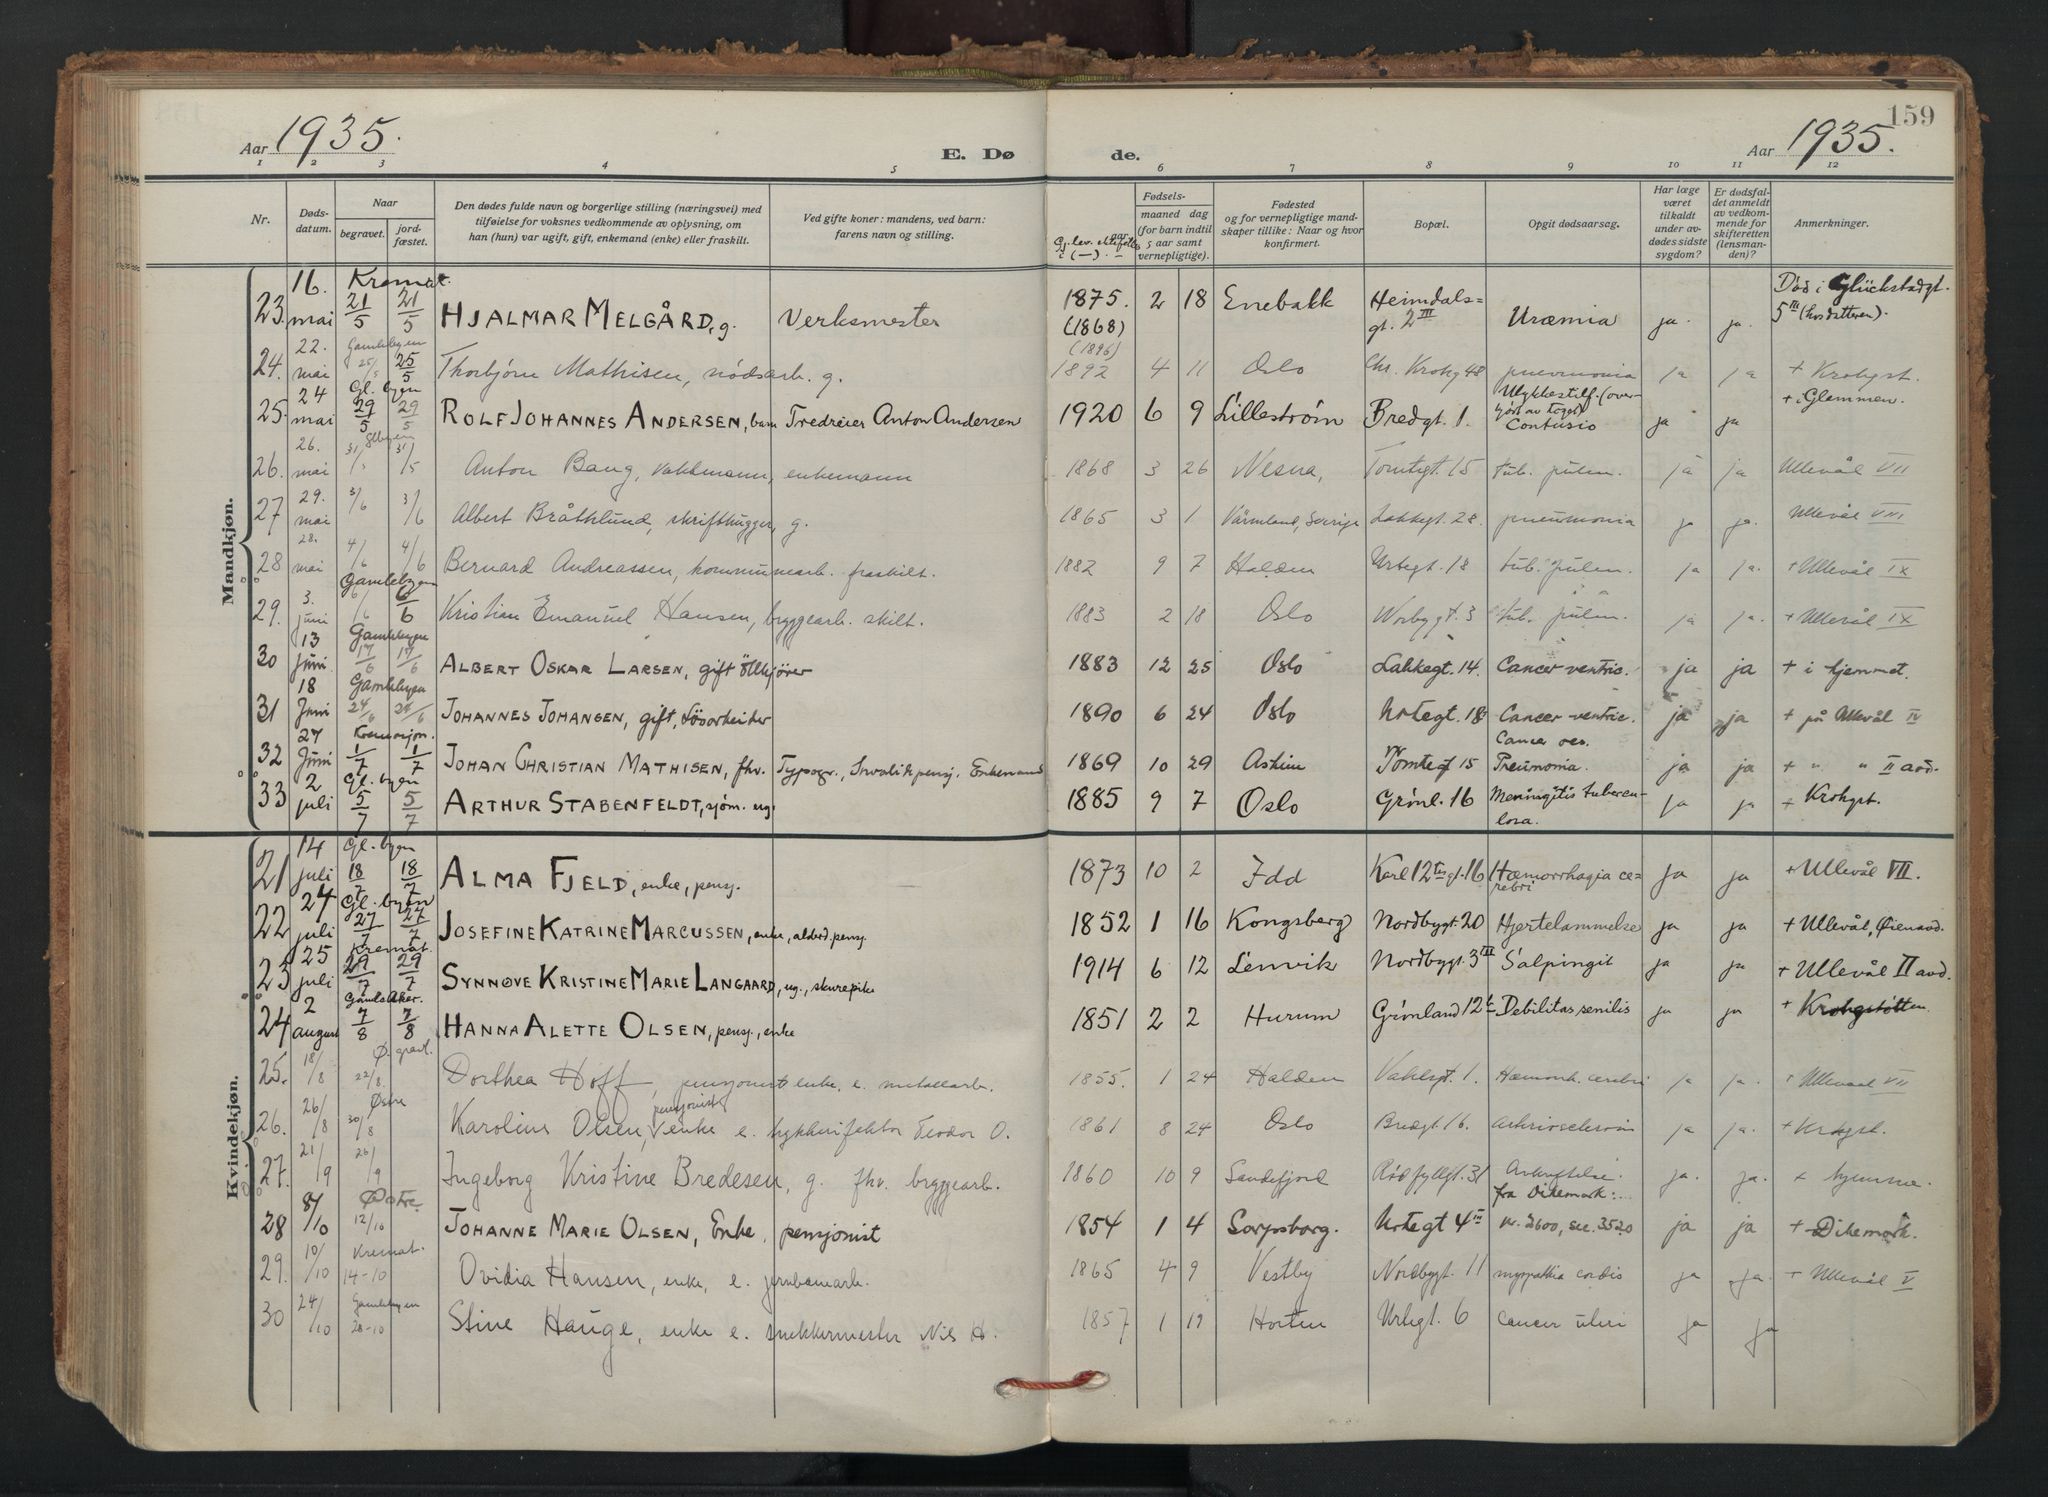 159
Aar 1935.
E. Dø
de.
Aar 1935.
1 2 3 4 5 6 7 8 9 10 11 12
Nr.
Døds-
datum.
Naar
begravet.
jord-
fæstet.
Den dødes fulde navn og borgerlige stilling (næringsvei) med
tilføielse for voksnes vedkommende av oplysning, om
han (hun) var ugift, gift, enkemand (enke) eller fraskilt.
Ved gifte koner: mandens, ved barn:
farens navn og stilling.
Fødsels-
aar
maaned dag
(for barn indtil
5 aar samt
vernepligtige).
Fødested
og for vernepligtige mand-
skaper tillike: Naar og hvor
konfirmert.
Bopæl.
Opgit dødsaarsag.
Har læge
været
tilkaldt
under av-
dødes sidste
sygdom?
Er dødsfal-
det anmeldt
av vedkom-
mende for
skifteretten
(lensman-
den)?
Anmerkninger.
Mandkjøn.
23. 16. mai Kremat. 21/5 21/5 HJALMAR MELGÅRD, g. Verksmester 1875. (1868) 2 18 Enebakk Heimdals=gt. 2 III Uræmia ja. ja. Død i Glückstadgt. 5 III (hos datteren).
24. 22. mai Gamlebyen 25/5 25/5 Thorbjørn Mathisen, nødsarb. g. (1896) 1892 4 11 Oslo Chr. Krohg 48 pneumonia ja ja + Krohgst.
25. 24 mai Gl. byen 29/5 29/5 ROLF JOHANNES ANDERSEN, barn Tredreier Anton Andersen 1920 6 9 Lillestrøm Bredgt. 1. Ulykkestilf. (over-kjørt av toget) Contusio ja ja + i Glemmen.
26. 26. mai Glbyen 31/5 31/5 Anton Bang, vaktmann, enkemann 1868 3 26 Nesna, Tomtegt. 15 tub. pulm. ja ja Ullevål VII
27 29. mai 3/6 3/6 Albert Bråtklund, skrifthugger, g. 1865 3 1 Värmland, Sverige Lakkegt. 28. pneumonia ja ja. Ullevål VIII
28 28. mai 4/6 4/6 Bernard Andreassen, kommunearb. fraskilt. 1882 9 7 Halden Urtegt. 18 tub. pulm. ja ja. + Ullevål IX
29. 3. juni Gamlebyen 6/6 6/6 Kristian Emanuel Hansen, bryggearb. skilt. 1883 2 18 Oslo Norbygt. 3 tub. pulm. ja ja. + Ullevål IX
30 13 Juni Gamlebyen 17/6 17/6 ALBERT OSKAR LARSEN, gift ölkjører 1883 12 25 Oslo Lakkegt. 14. Cancer ventric. ja ja + i hjemmet.
31 18 Juni Gamlebyen 24/6 24/6 JOHANNES JOHANSEN, gift, Løsarbeider 1890 6 24 Oslo Urtegt. 18 Cancer ventric. ja ja + på Ullevål IV
32 27 Juni Kremasjon. 1/7 1/7 JOHAN CHRISTIAN MATHISEN, fhv. Typogr., Invalidepensj. Enkemand 1869 10 29 Askim Tomtegt 15 Cancer oes. Pneumonia. ja ja + " " II avd.
33 2 juli Gl. byen 5/7 5/7 ARTHUR STABENFELDT, sjøm. ug. 1885 9 7 Oslo Grønl. 16 Meningitis tubercu-losa. ja ja + Krohgst.
Kvindekjøn.
21 14 juli Gl. byen 18/7 18/7 ALMA FJELD, enke, pensj. 1873 10 2 Idd Karl 12tes gt. 16 Hæmorrhagia ce-rebri ja ja + Ullevål VII.
22 24 juli Gl. byen 27/7 27/7 JOSEFINE KATRINE MARCUSSEN, enke, alderd. pensj. 1852 1 16 Kongsberg Nordbygt. 20 Hjertelammelse ja ja + Ullevål, Øienavd.
23 25 juli Kremat. 29/7 29/7 SYNNØVE KRISTINE MARIE LANGAARD, ug., skurepike 1914 6 12 Lenvik Nordbygt. 3 III Salpingit ja ja + Ullevål II avd.
24 2 august Gamle Aker. 7/8 7/8 HANNA ALETTE OLSEN, pensj., enke 1851 2 2 Hurum Grønland 12 Debilitas senilis ja ja + Krohgstøtten
25. 18/8 Ø. gravl. 22/8. Dorthea Hoff, pensjonist enke e. metallarb. 1855. 1 24 Halden Vahlsgt. 1. Hæmorrh. cerebri ja ja. + Ullevaal VII
26. 26/8 Østre 30/8 Karoline Olsen, pensjonist enke e. lykkterifektor Teodor O. 1861 8 24 Oslo Bredgt. 16. Arteriosclerosis ja ja. + Krohgst.
27. 21/9 26/9 Ingeborg Kristine Bredesen, g. fhv. bryggearb. 1860 10 9 Sandefjord Rødfyllgt. 31 Avkreftelse ja. ja. + hjemme.
28 8/10 Østre 12/10 JOHANNE MARIE OLSEN, Enke, pensjonist 1854 1 4 Sarpsborg. Urtegt 4 III fra Dikemark: Kr. 2600, sec. 3520 ja ja + Dikemark.
29. 10/10 Kremat. 14-10 Ovidia Hansen, enke, e. jernbanearb. 1865 4 9 Vestby Nordbygt. 11 myopathia cordis ja ja. + Ullevål V
30 24/10 Gamlebyen 28-10 Stine Hauge, enke e. snekkermester Nils H. 1857 1 19 Horten Urtegt. 6 Cancer uteri ja ja